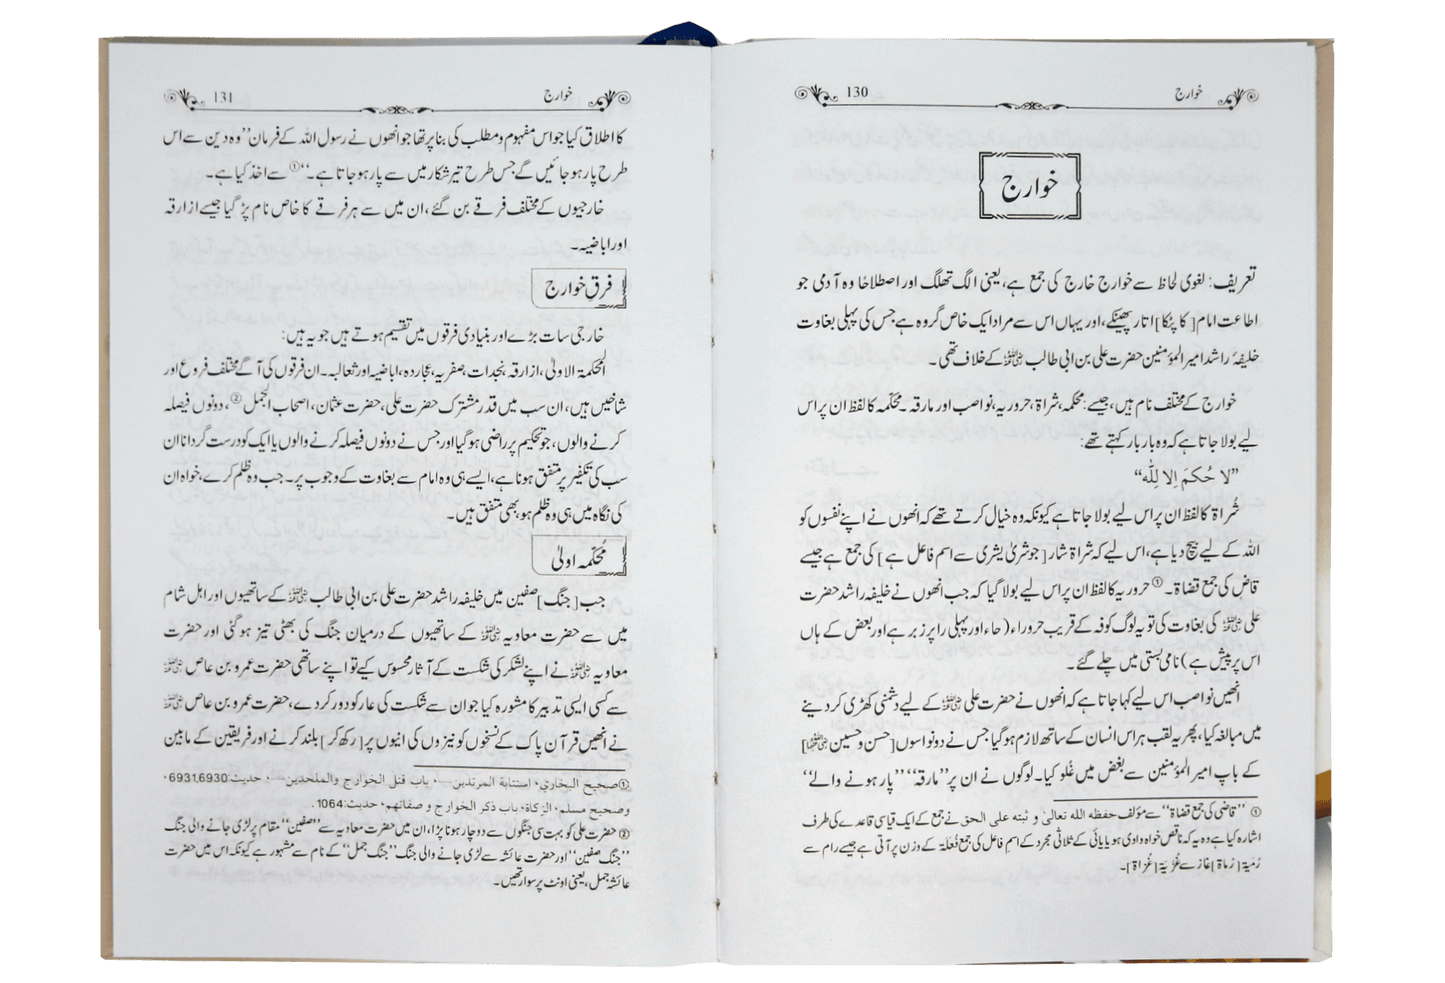 خوارج 130
خوارج
تعریف: لغوی لحاظ سے خوارج خارج کی جمع ہے، یعنی الگ تھلگ اور اصطلاحًا وہ آدمی جو
اطاعت امام [کا پٹکا] اتار پھینکے، اور یہاں اس سے مراد ایک خاص گروہ ہے جس کی پہلی بغاوت
خلیفۂ راشد امیر المؤمنین حضرت علی بن ابی طالب رضی اللہ عنہ کے خلاف تھی۔
خوارج کے مختلف نام ہیں، جیسے: محکمہ، شراۃ، حروریہ، نواصب اور مارقہ۔ محکّمہ کا لفظ ان پر اس
لیے بولا جاتا ہے کہ وہ بار بار کہتے تھے:
”لا حُكمَ اِلا لِلّٰه“
شُراۃ کا لفظ ان پر اس لیے بولا جاتا ہے کیونکہ وہ خیال کرتے تھے کہ انھوں نے اپنے نفسوں کو
اللہ کے لیے بیچ دیا ہے، اس لیے کہ شراۃ شار [جو شریٰ یشری سے اسم فاعل ہے] کی جمع ہے جیسے
قاضٍ کی جمع قضاۃ۔① حروریہ کا لفظ ان پر اس لیے بولا گیا کہ جب انھوں نے خلیفہ راشد حضرت
علی رضی اللہ عنہ کی بغاوت کی تو یہ لوگ کوفہ کے قریب حروراء (حاء اور پہلی را پر زبر ہے اور بعض کے ہاں
اس پر پیش ہے) نامی بستی میں چلے گئے۔
انھیں نواصب اس لیے کہا جاتا ہے کہ انھوں نے حضرت علی رضی اللہ عنہ کے لیے دشمنی کھڑی کر دینے
میں مبالغہ کیا، پھر یہ لقب ہر اس انسان کے ساتھ لازم ہو گیا جس نے دو نواسوں [حسن و حسین رضی اللہ عنہما]
کے باپ امیر المؤمنین سے بغض میں غُلو کیا۔ لوگوں نے ان پر ”مارقہ“ ”پار ہونے والے“
① ”قاضی کی جمع قضاۃ“ سے مؤلف حفظه الله تعالىٰ و ثبته على الحق نے جمع کے ایک قیاسی قاعدے کی طرف
اشارہ کیا ہے وہ یہ کہ ناقص خواہ واوی ہو یا یائی کے ثلاثی مجرد کے اسم فاعل کی جمع فُعَلَة کے وزن پر آتی ہے جیسے رام سے
رُمَيَة [رُماة] غاز سے غُزَيَة [غُزاة]۔
خوارج 131
کا اطلاق کیا جو اس مفہوم و مطلب کی بنا پر تھا جو انھوں نے رسول اللہ کے فرمان ”وہ دین سے اس
طرح پار ہو جائیں گے جس طرح تیر شکار میں سے پار ہو جاتا ہے۔“① سے اخذ کیا ہے۔
خارجیوں کے مختلف فرقے بن گئے، ان میں سے ہر فرقے کا خاص نام پڑ گیا جیسے ازارقہ
اور اباضیہ۔
فرقِ خوارج
خارجی سات بڑے اور بنیادی فرقوں میں تقسیم ہوتے ہیں جو یہ ہیں:
المحکمۃ الاولیٰ، ازارقہ، نجدات، صفریہ، عجاردہ، اباضیہ اور ثعالبہ۔ ان فرقوں کی آگے مختلف فروع اور
شاخیں ہیں، ان سب میں قدر مشترک حضرت علی، حضرت عثمان، اصحاب الجمل②، دونوں فیصلہ
کرنے والوں، جو تحکیم پر راضی ہو گیا اور جس نے دونوں فیصلہ کرنے والوں یا ایک کو درست گردانا ان
سب کی تکفیر پر متفق ہونا ہے، ایسے ہی وہ امام سے بغاوت کے وجوب پر۔ جب وہ ظلم کرے، خواہ ان
کی نگاہ میں ہی وہ ظلم ہو، بھی متفق ہیں۔
مُحکّمہ اولیٰ
جب [جنگ] صفین میں خلیفہ راشد حضرت علی بن ابی طالب رضی اللہ عنہ کے ساتھیوں اور اہل شام
میں سے حضرت معاویہ رضی اللہ عنہ کے ساتھیوں کے درمیان جنگ کی بھٹی تیز ہو گئی اور حضرت
معاویہ رضی اللہ عنہ نے اپنے لشکر کی شکست کے آثار محسوس کیے تو اپنے ساتھی حضرت عمرو بن عاص رضی اللہ عنہ
سے کسی ایسی تدبیر کا مشورہ کیا جو ان سے شکست کی عار کو دور کر دے، حضرت عمرو بن عاص رضی اللہ عنہ
نے انھیں قرآن پاک کے نسخوں کو نیزوں کی انیوں پر [رکھ کر] بلند کرنے اور فریقین کے مابین
① صحيح البخاري، استتابة المرتدين......، باب قتل الخوارج والملحدين......، حديث: 6931,6930،
وصحيح مسلم، الزكاة، باب ذكر الخوارج و صفاتهم، حديث: 1064.
② حضرت علی کو بہت سی جنگوں سے دوچار ہونا پڑا، ان میں حضرت معاویہ سے ”صفین“ مقام پر لڑی جانے والی جنگ
”جنگ صفین“ اور حضرت عائشہ سے لڑی جانے والی جنگ ”جنگ جمل“ کے نام سے مشہور ہے کیونکہ اس میں حضرت
عائشہ جمل، یعنی اونٹ پر سوار تھیں۔